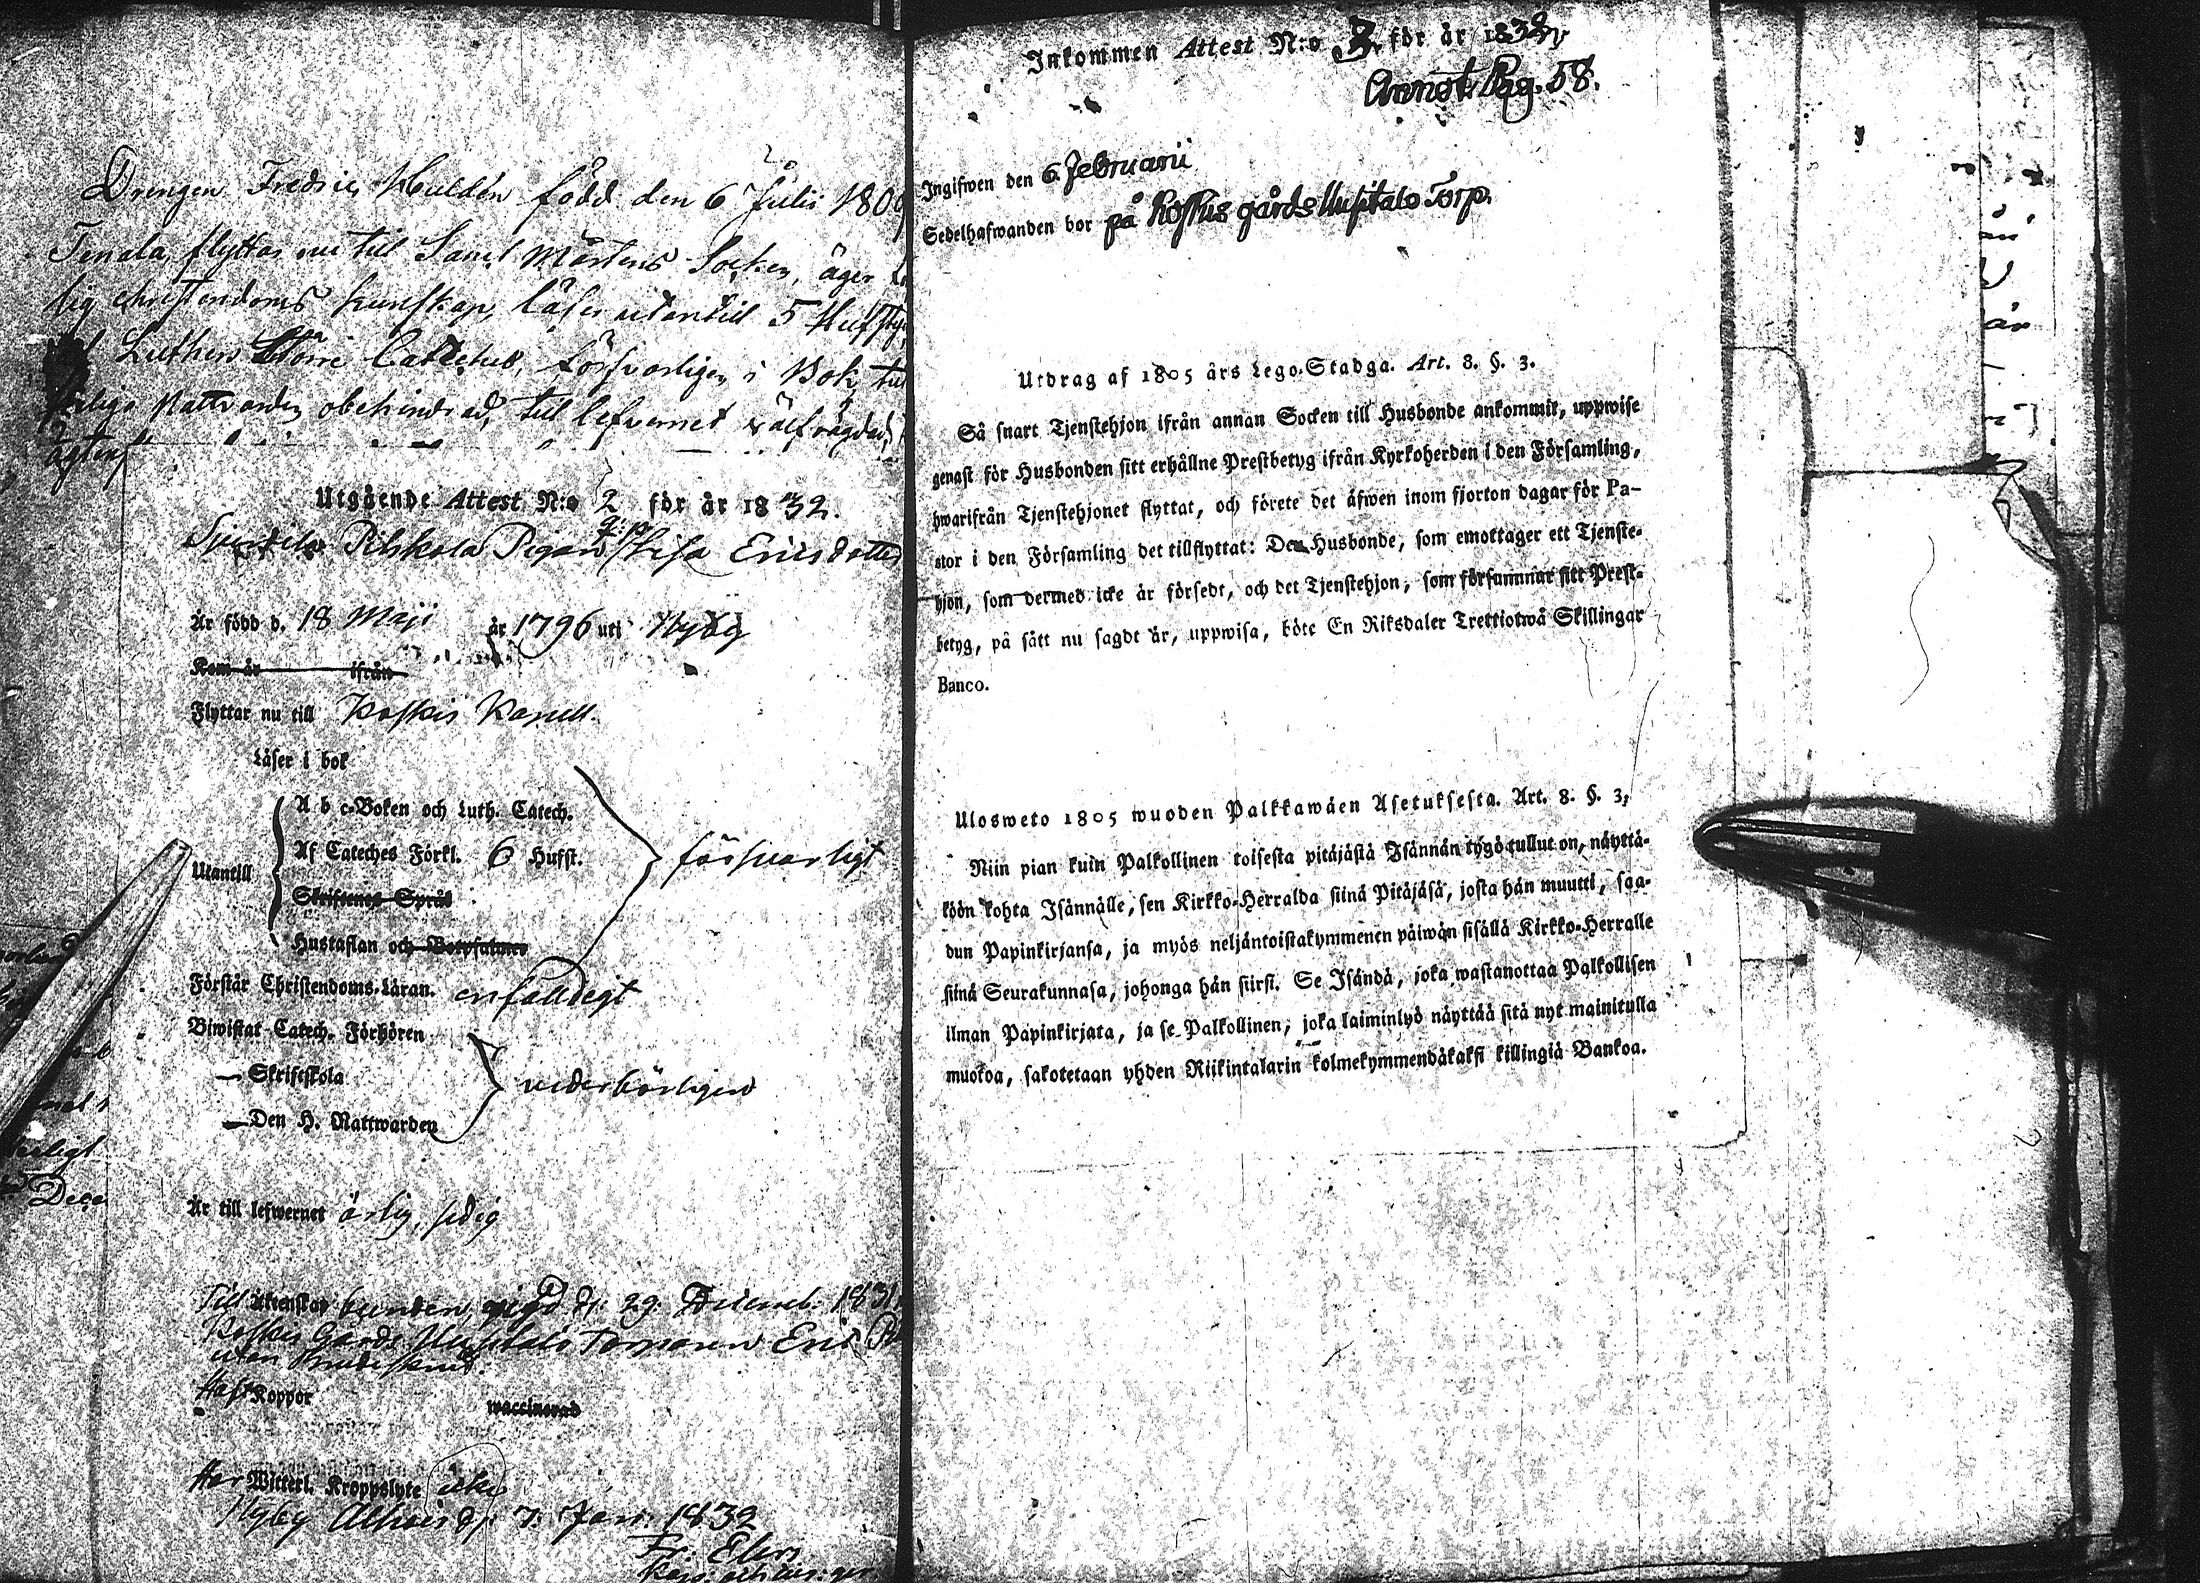 Drengen Fredric Huldén född den 6 Julii 180
Tenala flyttar nu till Sanct Mårtens Socken, äger
lig christendoms kunskap, läser utantill 5 Hufst
Luthers Större Cateches, försvarligen i Bok
Nattvarden obehindrad, till lefvernet välfrägdad,
ägtensk
Utgående Attest N:o 2 för år 1832.
Pilskola Pigan Lisa Ericsdotter
Är född d. 18 Maji år 1796 uti Hyby
Kom år ifrån
Flyttar nu till Koskis Kapell.
Läser i bok
A b c-Boken och Luth. Catech.
Utantill Af Cateches Förkl. 6 Hufst. försvarligt
Skriftenes Språk
Hustaflan och Botpsalmer
Förstår Christendoms-Läran. enfalldigt
Biwistat Catech. Förhören
Skriftskola vederbörligen
Den H. Nattwarden
Är till lefwernet ärlig, sedig
Till Äktenskap bunden, vigd d. 29 Decemb. 1831
Koskis Gårds Uusitalo Torparen Eric
utan
Haft Koppor waccinerad
Har Witterl. Kroppslyte icke
Hyby d. 7. Jan: 1832
Fr. Elers
Inkommen Attest N:o 3. för år 1832
Annot. Pag. 58.
Ingifwen den 6 Februarii
Sedelhafwanden bor på Koskis gårds Uusitalo Torp.
Utdrag af 1805 års Lego-Stadga. Art. 8. §. 3.
Så snart Tjenstehjon ifrån annan Socken till Husbonde ankommit, uppwise
genast för Husbonden sitt erhållne Prestbetyg ifrån Kyrkoherden i den Församling,
hwarifrån Tjenstehjonet flyttat, och förete det äfwen inom fjorton dagar för Pa-
stor i den Församling det tillflyttat: Den Husbonde, som emottager ett Tjenste-
hjon, som dermed icke är försedt, och det Tjenstehjon, som försummar sitt Prest-
betyg, på sätt nu sagdt är, uppwisa, böte En Riksdaler Trettiotwå Skillingar
Banco.
Ulosweto 1805 wuoden Palkkawäen Asetuksesta. Art. 8. §. 3,
Niin pian kuin Palkollinen toisesta pitäjästä Isännän tygö tullut on, näyttä-
köön kohta Isännälle, sen Kirkko-Herralda siinä Pitäjäsä, josta hän muutti, saa-
dun Papinkirjansa, ja myös neljäntoistakymmenen päiwän sisällä Kirkko-Herralle
siinä Seurakunnasa, johonga hän siirsi. Se Isändä, joka wastanottaa Palkollisen
ilman Papinkirjata, ja se Palkollinen, joka laiminlyö näyttää sitä nyt mainitulla
muokoa, sakotetaan yhden Riikintalarin kolmekymmendäkaksi killingiä Bankoa.